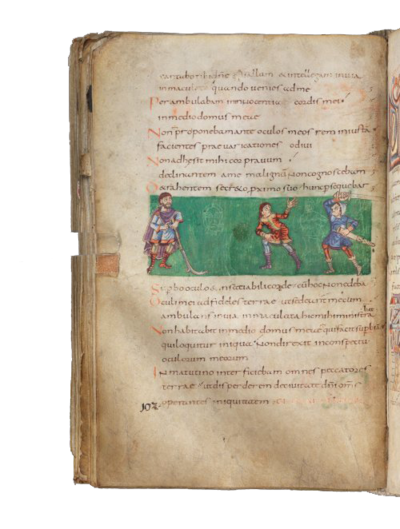 psallam & intellegam in uia
inmaculata quando uenies ad me
Perambulabam cordis mei
in medio domus meae
Non proponebam ante oculos meos rem iniustã
facientes praeuaricationes odiui
Non adhesit mihi cor prauum
declinantem a me malignũ non cognoscebam
secreto proximo suo hunc persequebar
oculo & insatiabili corde
Oculi mei ad fideles terrae mecum
ambulans in uia inmaculata hic mihi
Non habitabit in medio domus meae qui facit
qui loquitur iniqua Non direxit in conspectu
oculorum meorum
In matutino interficiebam omnes peccatores
terrae ut disperderem de ciuitate dñi
102. operantes iniquitatem